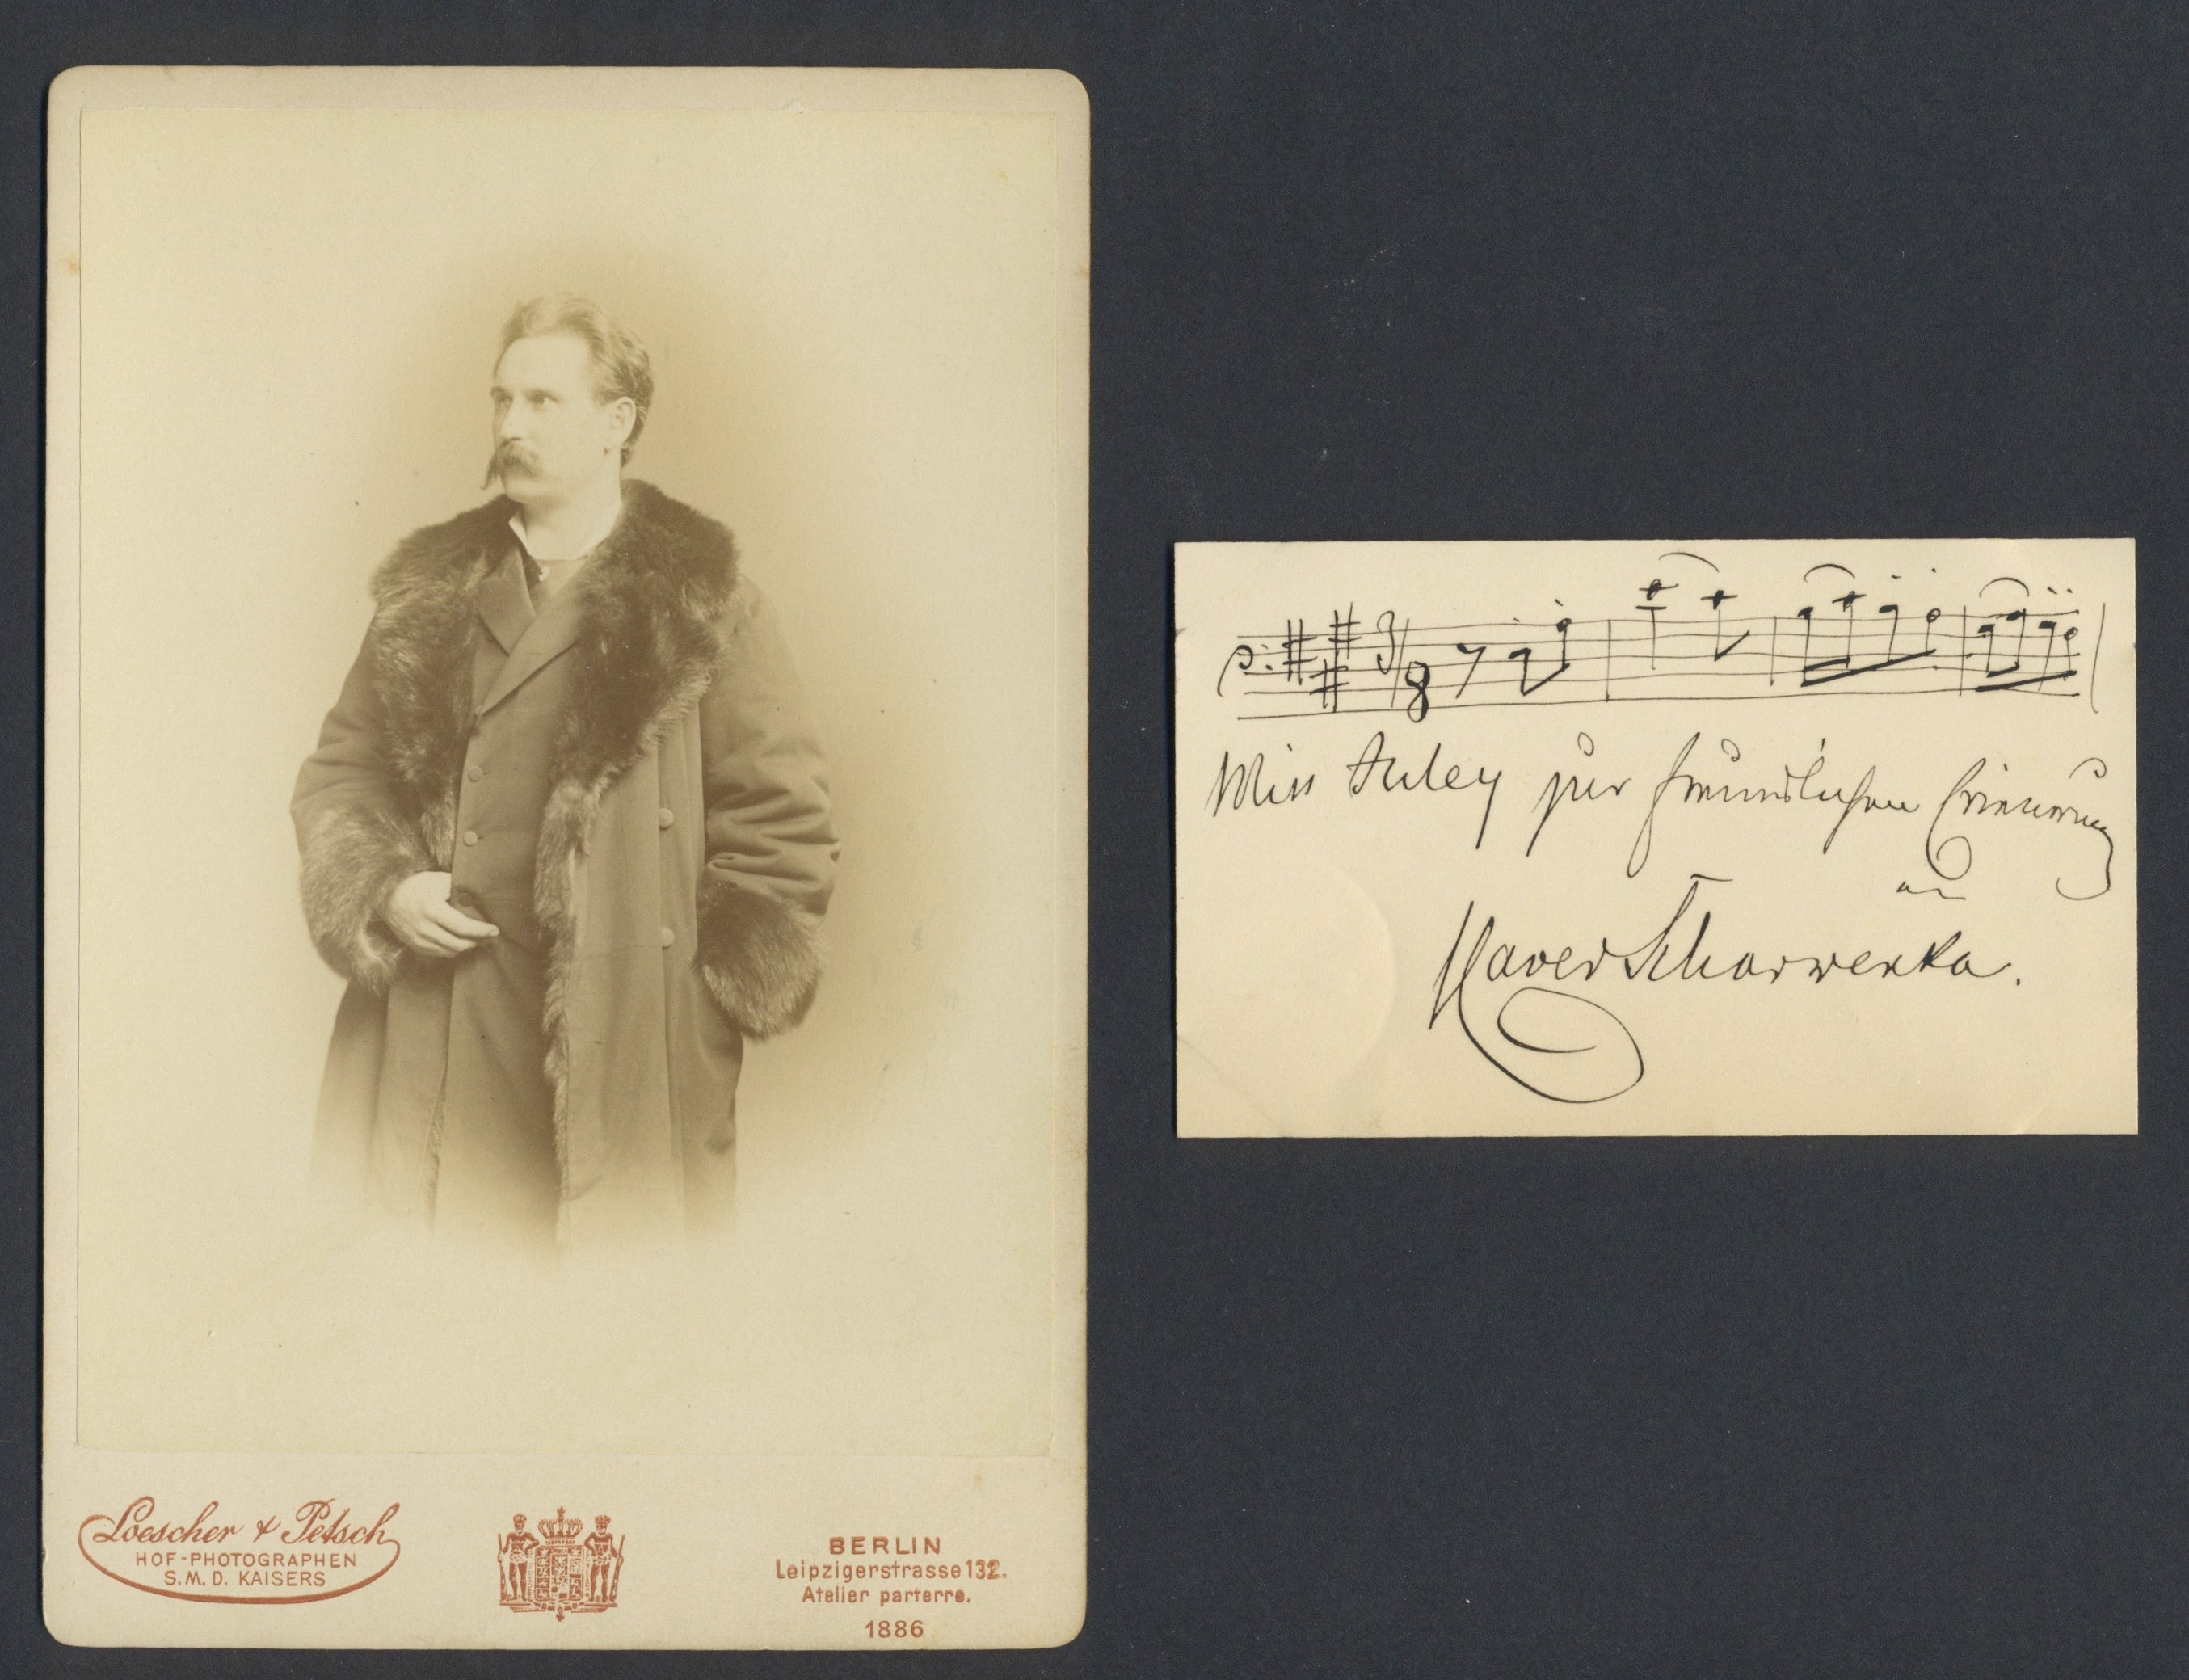 Loescher & Petsch
HOF-PHOTOGRAPHEN
S.M.D. KAISERS
BERLIN
Leipzigerstrasse 132.
Atelier parterre.
1886
3/8
Miss zur freundlichen Erinnerung
an
Xaver Scharwenka.